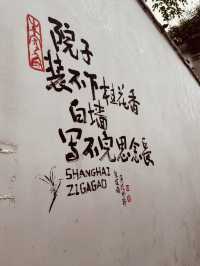 院子
装不下桂花香
白墙
写不完思念长
SHANGHAI
ZIGAGAO